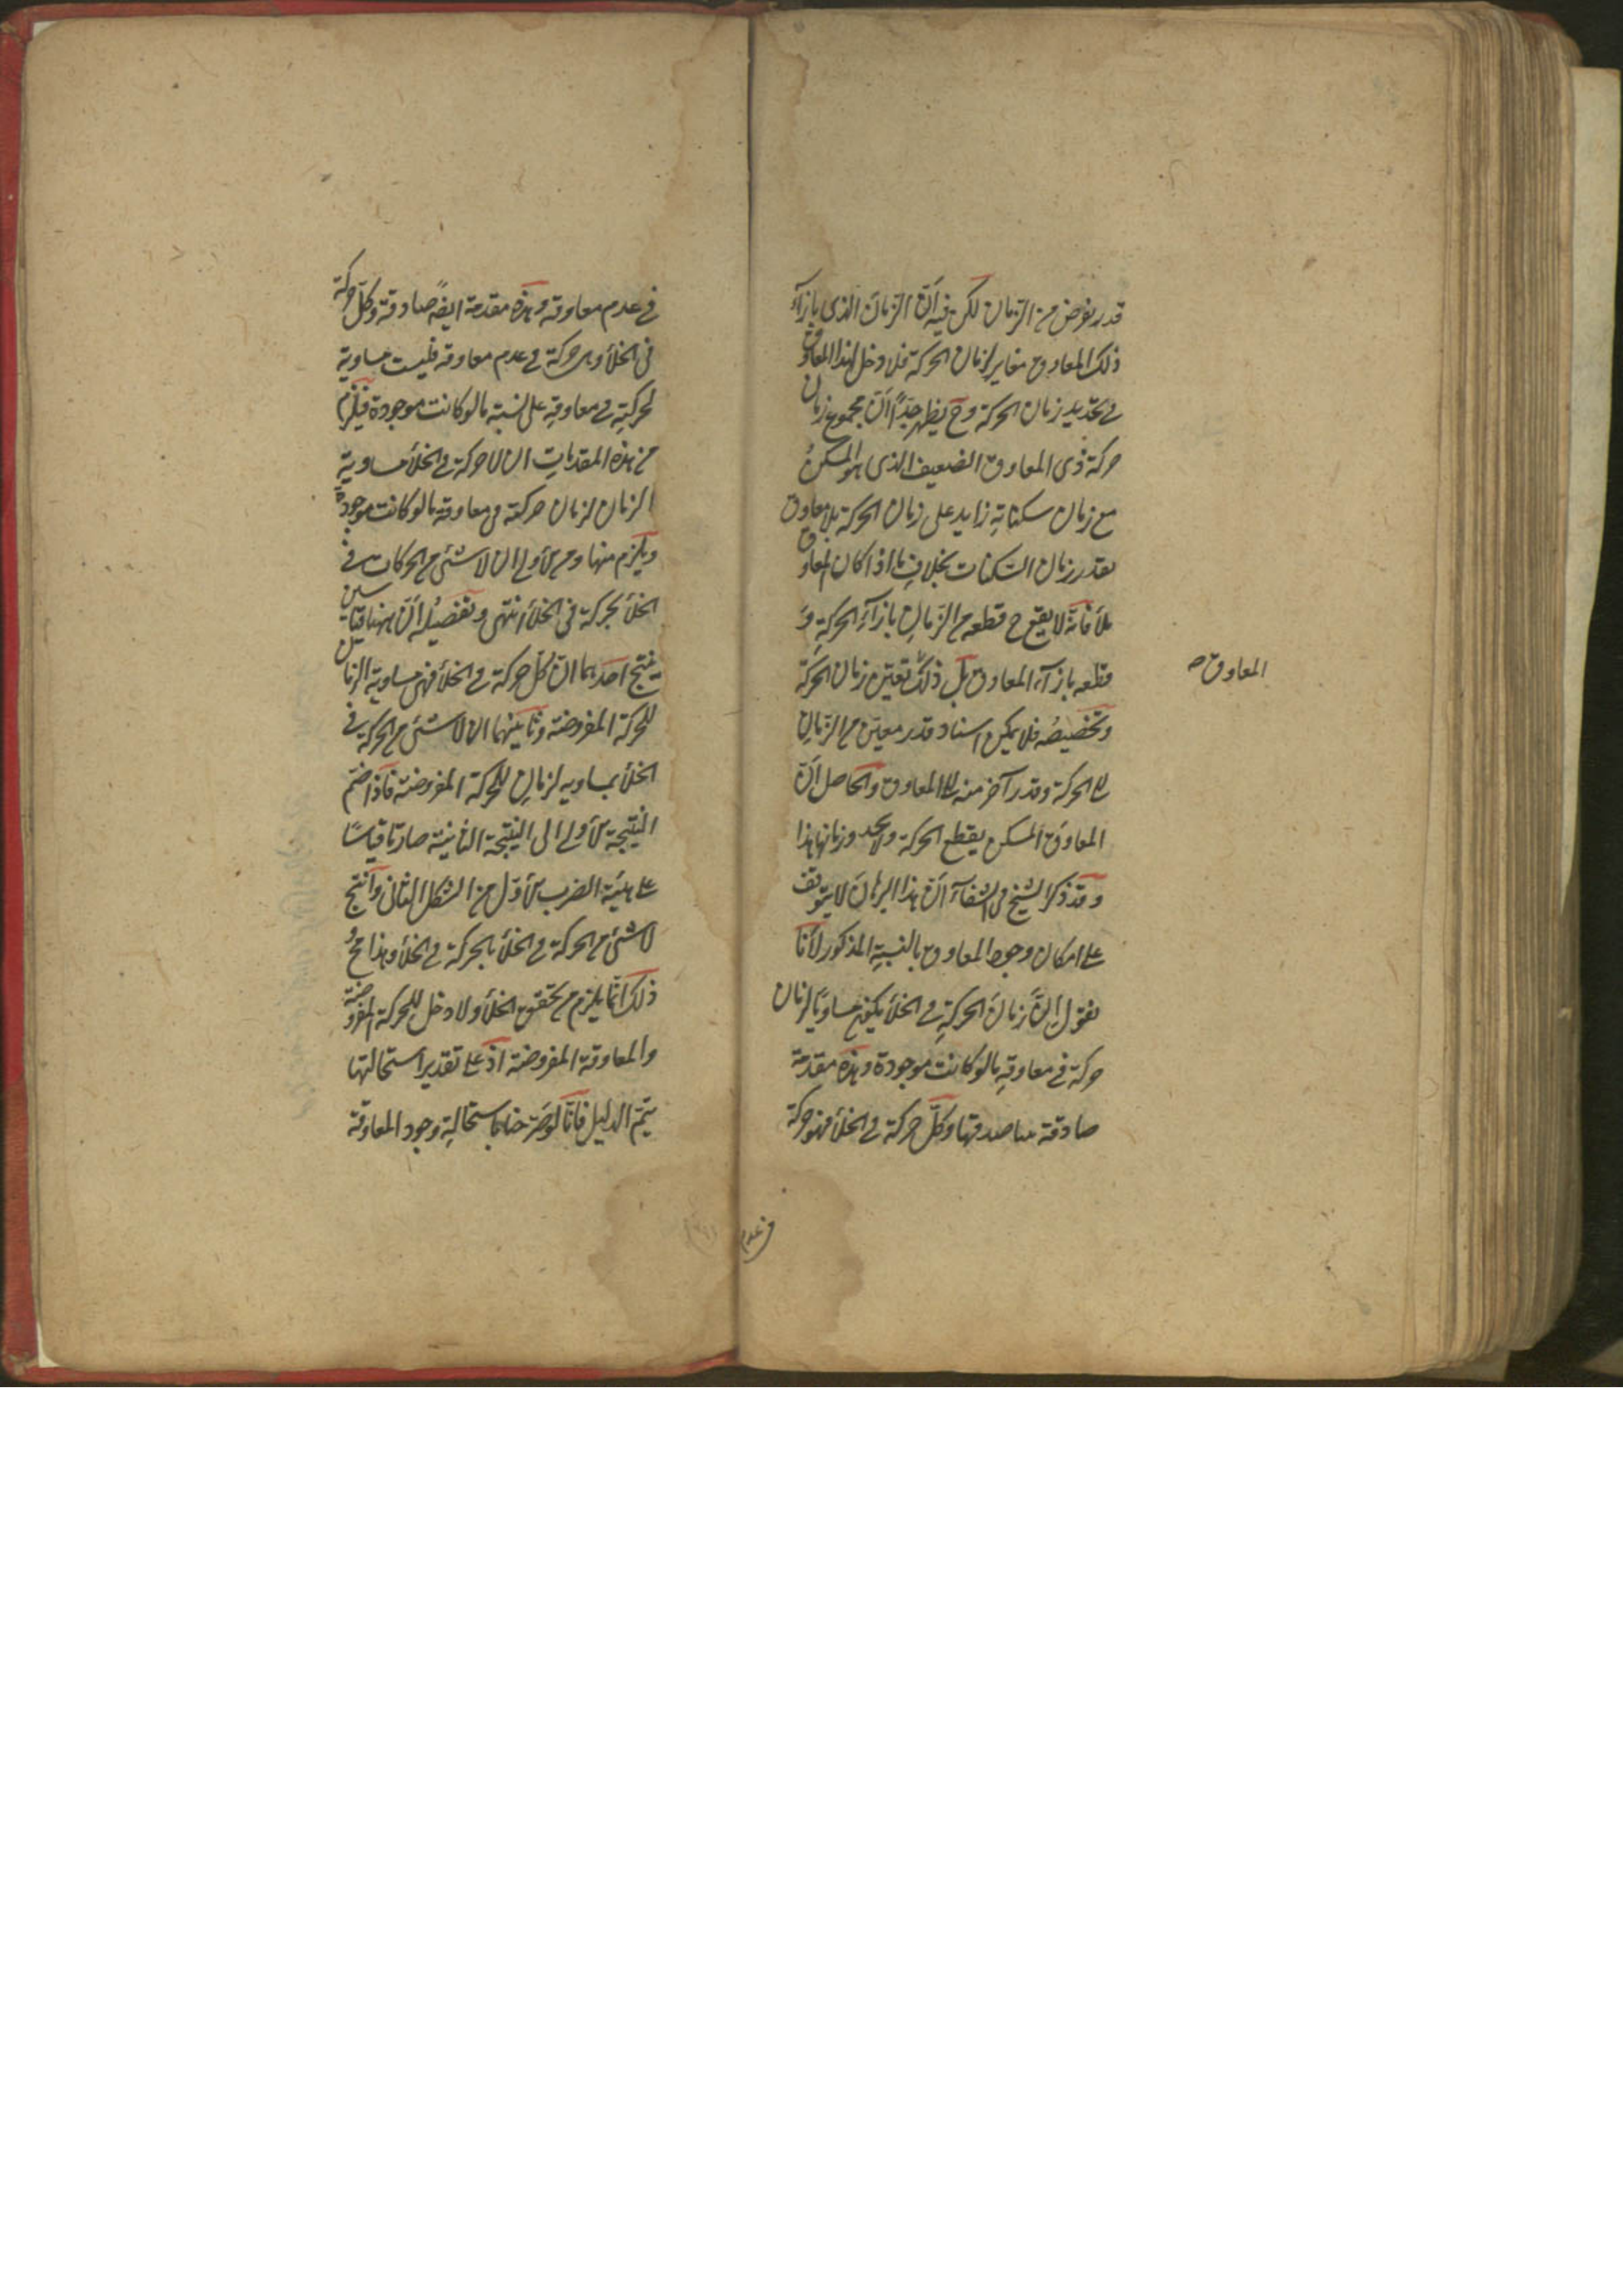 قدر يفرض من الزمان لكن فيه أنّ الزمان الذى بازآء
ذلك المعاوق مغاير لزمان الحركة فلا دخل لهذا المعاوق
فى تحديد زمان الحركة وح يظهر جدًّا أنّ مجموع زمان
حركة ذى المعاوق الضعيف الذى هو المسكن
مع زمان سكناته زايد على زمان الحركة بلا معاوق
بقدر زمان السّكنات بخلاف ما اذا كان المعاوق
ملأ فانّه لا يقع ح قطعه من الزّمان بازآء الحركة و
قطعه بازآء المعاوق بل ذلك تعيّن زمان الحركة
المعاوق صح
وتخصيصه فلا يمكن اسناد قدر معيّن من الزّمان
الى الحركة وقدر آخر منه الى المعاوق والحاصل أنّ
المعاوق المسكن يقطع الحركة ولا يحدد زمانها هذا
وقد ذكر الشيخ فى الشفآء أنّ هذا البرهان لا يتوقف
على امكان وجود المعاوق بالنسبة المذكور لأنّا
نقول إنّ زمان الحركة فى الخلأ يكون مساويًا لزمان
حركة فى معاوقة ما لو كانت موجودة وهذه مقدمة
صادقة صدقها وكلّ حركة فى الخلأ فهو حركة
فى عدم
فى عدم معاوقة وهذه مقدمة ايضًا صادقة وكلّ حركة
فى الخلأ وهى حركة فى عدم معاوقة فليست مساوية
لحركة فى معاوقة على نسبة ما لو كانت موجودة فيلزم
من هذه المقدمات ان لا حركة فى الخلأ مساوية
الزمان لزمان حركته فى معاوقة ما لو كانت موجودة
ويلزم منها ومن الأولى ان لا شئ من الحركات فى
الخلأ بحركة فى الخلأ انتهى وتفصيله أنّ ههنا قياسين
ينتج احدهما انّ كلّ حركة فى الخلأ فهى مساوية الزمان
للحركة المفروضة وثانيهما ان لا شئ من الحركة فى
الخلأ بمساويه لزمان للحركة المفروضة فاذا ضمّ
النتيجة الأولى الى النتيجة الثانية صارتا قياسًا
على هيئة الضرب الأوّل من الشكل الثانى وانتج
لا شئ من الحركة فى الخلأ بالحركة فى الخلأ وهذا مح و
ذلك انّما يلزم من تحقق الخلأ ولا دخل للحركة المفروضة
والمعاوقة المفروضة اذ على تقدير استحالتها
يتمّ الدليل فانّا لو صرّحنا باستحالة وجود المعاوقة